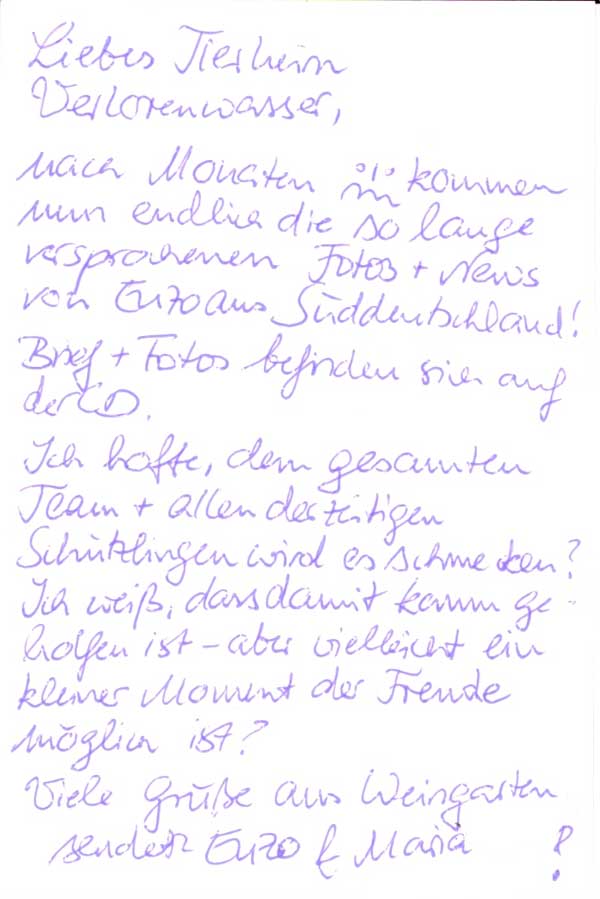 Liebes Tierheim
Verlorenwasser,
nach Monaten kommen
nun endlich die so lange
versprochenen Fotos + News
von Enzo aus Süddeutschland!
Brief + Fotos befinden sich auf
der CD.
Ich hoffe, dem gesamten
Team + allen derzeitigen
Schützlingen wird es schmecken?
Ich weiß, dass damit kaum ge-
holfen ist – aber vielleicht ein
kleiner Moment der Freude
möglich ist?
Viele Grüße aus Weingarten
senden Enzo & Maria !